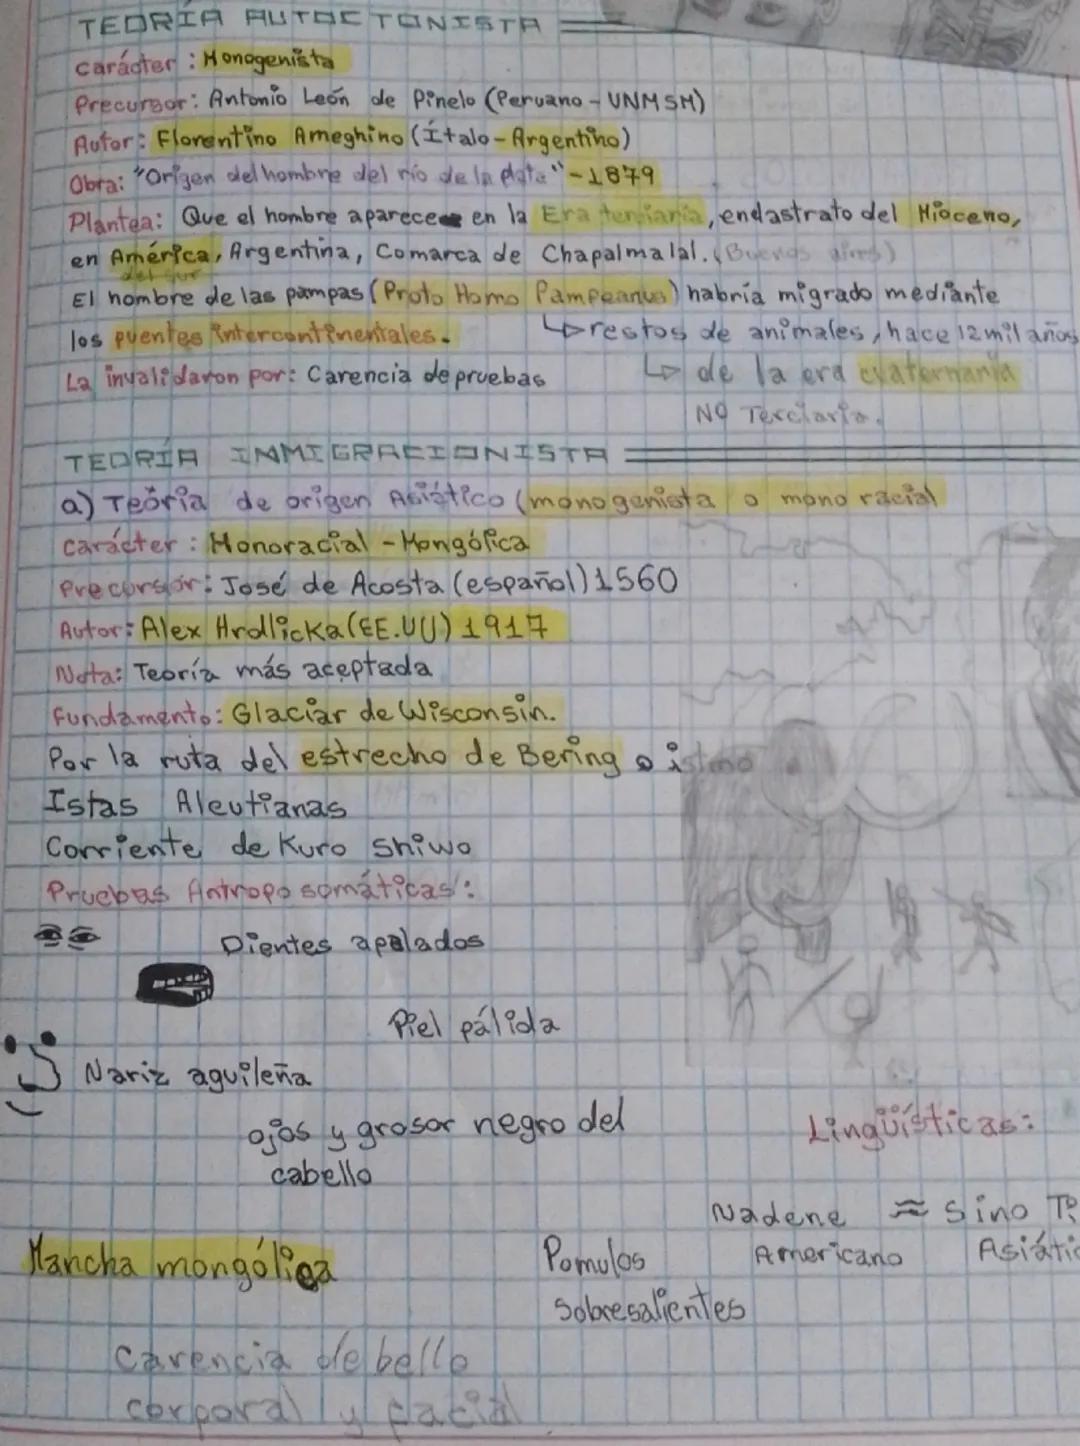 TEORÍA AUTOCTONISTA
carácter : Monogenista
Precursor: Antonio León de Pinelo (Peruano - UNMSM)
Autor: Florentino Ameghino (Ítalo-Argentino)
Obra: "Origen del hombre del río de la plata" - 1879
Plantea: Que el hombre aparece en la Era terciaria, endastrato del Mioceno,
en América, Argentina, Comarca de Chapalmalal. (Buenos aires)
del sur
El hombre de las pampas (Proto Homo Pampeanus) habría migrado mediante
los puentes intercontinentales.
restos de animales, hace 12 mil años
La invalidaron por: Carencia de pruebas
de la era cuaternaria
NO Terciaria.
TEORÍA INMIGRACIONISTA
a) Teoría de origen Asiático (monogenista o mono racial
carácter : Monoracial - Mongólica
Precursor: José de Acosta (español) 1560
Autor: Alex Hrdlicka (EE.UU) 1917
Nota: Teoría más aceptada
Fundamento: Glaciar de Wisconsin.
Por la ruta del estrecho de Bering o istmo
Istas Aleutianas
Corriente de Kuro Shiwo
Pruebas Antropo somáticas:
Dientes apalados
Piel pálida
Nariz aguileña
ojos y grosor negro del
cabello
Lingüísticas:
Nadene ≈ Sino
Americano
Mancha mongólica
Pomulos
sobresalientes
carencia de bello
corporal y facial